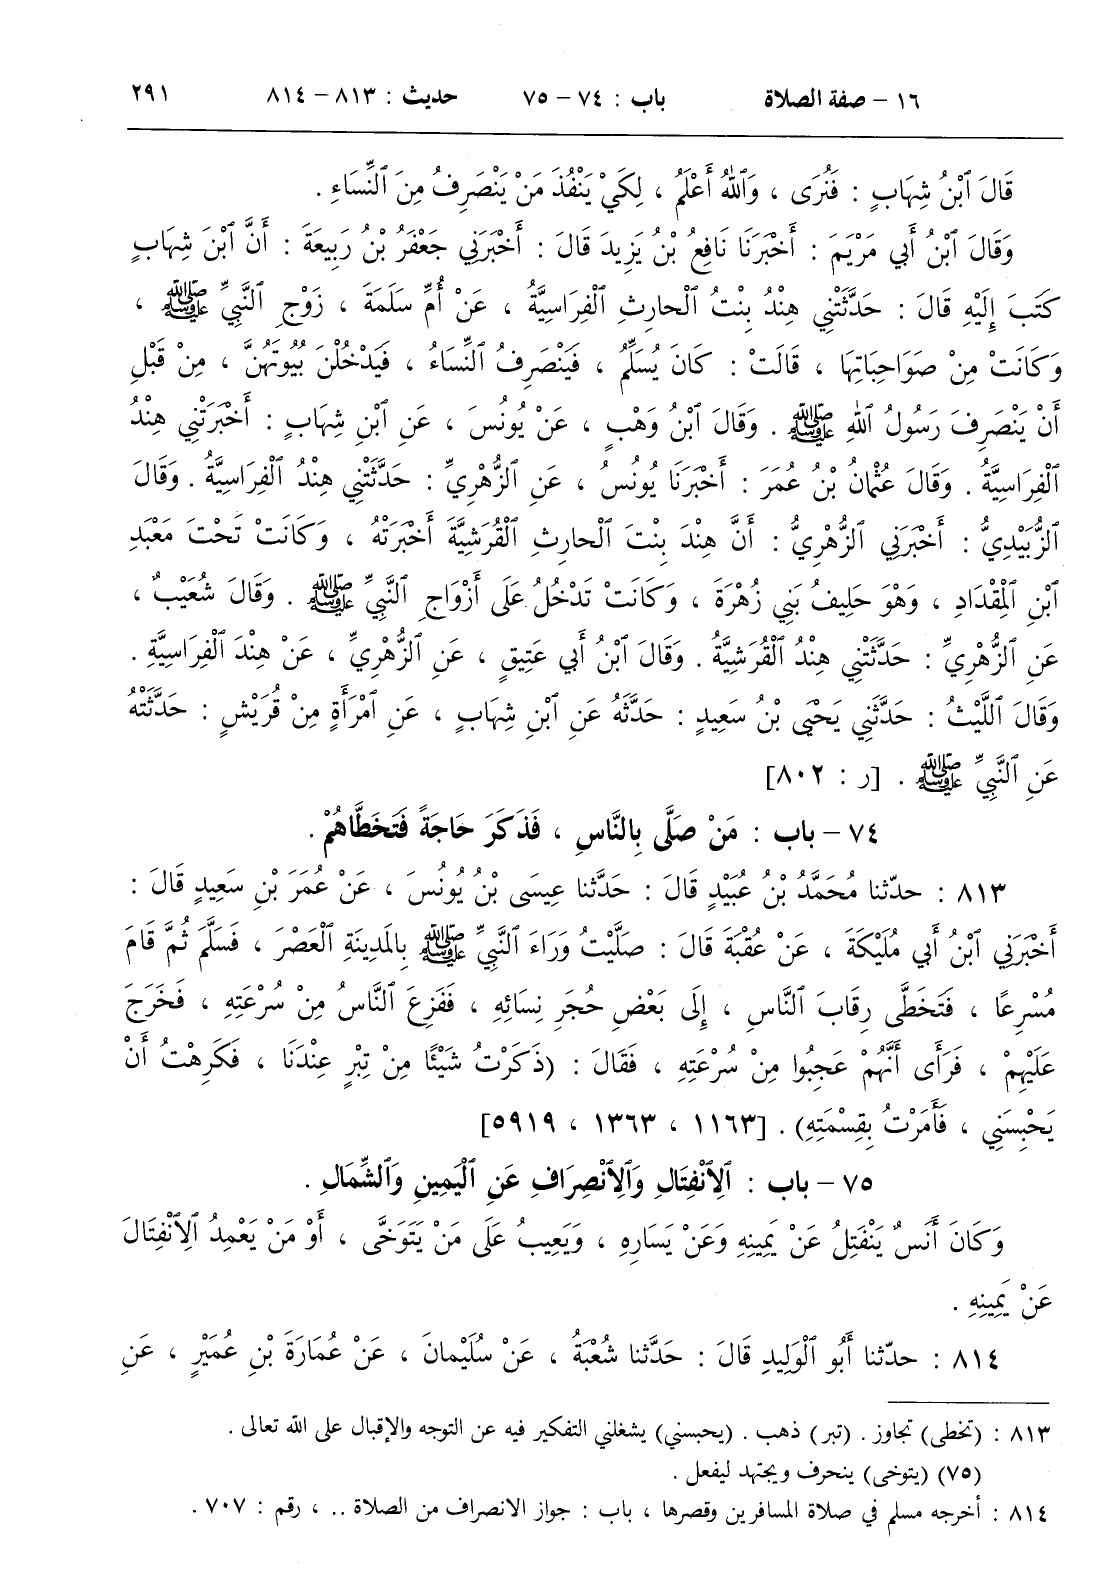 ١٦ – صفة الصلاة باب : ٧٤ – ٧٥ حديث : ٨١٣ – ٨١٤ ٢٩١
قَالَ ٱبْنُ شِهَابٍ : فَنُرَى ، وَٱللهُ أَعْلَمُ ، لِكَيْ يَنْفُذَ مَنْ يَنْصَرِفُ مِنَ ٱلنِّسَاءِ .
وَقَالَ ٱبْنُ أَبِي مَرْيَمَ : أَخْبَرَنَا نَافِعُ بْنُ يَزِيدَ قَالَ : أَخْبَرَنِي جَعْفَرُ بْنُ رَبِيعَةَ : أَنَّ ٱبْنَ شِهَابٍ
كَتَبَ إِلَيْهِ قَالَ : حَدَّثَتْنِي هِنْدُ بِنْتُ ٱلْحارِثِ ٱلْفِرَاسِيَّةُ ، عَنْ أُمِّ سَلَمَةَ ، زَوْجِ ٱلنَّبِيِّ ﷺ ،
وَكَانَتْ مِنْ صَوَاحِبَاتِهَا ، قَالَتْ : كَانَ يُسَلِّمُ ، فَيَنْصَرِفُ ٱلنِّسَاءُ ، فَيَدْخُلْنَ بُيُوتَهُنَّ ، مِنْ قَبْلِ
أَنْ يَنْصَرِفَ رَسُولُ ٱللهِ ﷺ . وَقَالَ ٱبْنُ وَهْبٍ ، عَنْ يُونُسَ ، عَنِ ٱبْنِ شِهَابٍ : أَخْبَرَتْنِي هِنْدُ
ٱلْفِرَاسِيَّةُ . وَقَالَ عُثْمَانُ بْنُ عُمَرَ : أَخْبَرَنَا يُونُسُ ، عَنِ ٱلزُّهْرِيِّ : حَدَّثَتْنِي هِنْدُ ٱلْفِرَاسِيَّةُ . وَقَالَ
ٱلزُّبَيْدِيُّ : أَخْبَرَنِي ٱلزُّهْرِيُّ : أَنَّ هِنْدَ بِنْتَ ٱلْحارِثِ ٱلْقُرَشِيَّةَ أَخْبَرَتْهُ ، وَكَانَتْ تَحْتَ مَعْبَدِ
ٱبْنِ ٱلْمِقْدَادِ ، وَهْوَ حَلِيفُ بَنِي زُهْرَةَ ، وَكَانَتْ تَدْخُلُ عَلَى أَزْوَاجِ ٱلنَّبِيِّ ﷺ . وَقَالَ شُعَيْبٌ ،
عَنِ ٱلزُّهْرِيِّ : حَدَّثَتْنِي هِنْدُ ٱلْقُرَشِيَّةُ . وَقَالَ ٱبْنُ أَبِي عَتِيقٍ ، عَنِ ٱلزُّهْرِيِّ ، عَنْ هِنْدَ ٱلْفِرَاسِيَّةِ .
وَقَالَ اللَّيْثُ : حَدَّثَنِي يَحْيَى بْنُ سَعِيدٍ : حَدَّثَهُ عَنِ ٱبْنِ شِهَابٍ ، عَنِ ٱمْرَأَةٍ مِنْ قُرَيْشٍ : حَدَّثَتْهُ
عَنِ ٱلنَّبِيِّ ﷺ . [ر : ٨٠٢]
٧٤ – باب : مَنْ صَلَّى بِالنَّاسِ ، فَذَكَرَ حَاجَةً فَتَخَطَّاهُمْ .
٨١٣ : حدّثنا مُحَمَّدُ بْنُ عُبَيْدٍ قَالَ : حَدَّثَنا عِيسَى بْنُ يُونُسَ ، عَنْ عُمَرَ بْنِ سَعِيدٍ قَالَ :
أَخْبَرَنِي ٱبْنُ أَبِي مُلَيْكَةَ ، عَنْ عُقْبَةَ قَالَ : صَلَّيْتُ وَرَاءَ ٱلنَّبِيِّ ﷺ بِالمَدِينَةِ ٱلْعَصْرَ ، فَسَلَّمَ ثُمَّ قَامَ
مُسْرِعًا ، فَتَخَطَّى رِقَابَ ٱلنَّاسِ ، إِلَى بَعْضِ حُجَرِ نِسَائِهِ ، فَفَزِعَ ٱلنَّاسُ مِنْ سُرْعَتِهِ ، فَخَرَجَ
عَلَيْهِمْ ، فَرَأَى أَنَّهُمْ عَجِبُوا مِنْ سُرْعَتِهِ ، فَقَالَ : (ذَكَرْتُ شَيْئًا مِنْ تِبْرٍ عِنْدَنَا ، فَكَرِهْتُ أَنْ
يَحْبِسَنِي ، فَأَمَرْتُ بِقِسْمَتِهِ) . [١١٦٣ ، ١٣٦٣ ، ٥٩١٩]
٧٥ – باب : ٱلِٱنْفِتَالِ وَٱلِٱنْصِرَافِ عَنِ ٱلْيَمِينِ وَٱلشِّمَالِ .
وَكَانَ أَنَسٌ يَنْفَتِلُ عَنْ يَمِينِهِ وَعَنْ يَسَارِهِ ، وَيَعِيبُ عَلَى مَنْ يَتَوَخَّى ، أَوْ مَنْ يَعْمِدُ ٱلِٱنْفِتَالَ
عَنْ يَمِينِهِ .
٨١٤ : حدّثنا أَبُو ٱلْوَلِيدِ قَالَ : حَدَّثَنا شُعْبَةُ ، عَنْ سُلَيْمانَ ، عَنْ عُمَارَةَ بْنِ عُمَيْرٍ ، عَنِ
٨١٣ : (تخطى) تجاوز . (تبر) ذهب . (يحبسني) يشغلني التفكير فيه عن التوجه والإقبال على الله تعالى .
(٧٥) (يتوخى) ينحرف ويجتهد ليفعل .
٨١٤ : أخرجه مسلم في صلاة المسافرين وقصرها ، باب : جواز الانصراف من الصلاة .. ، رقم : ٧٠٧ .